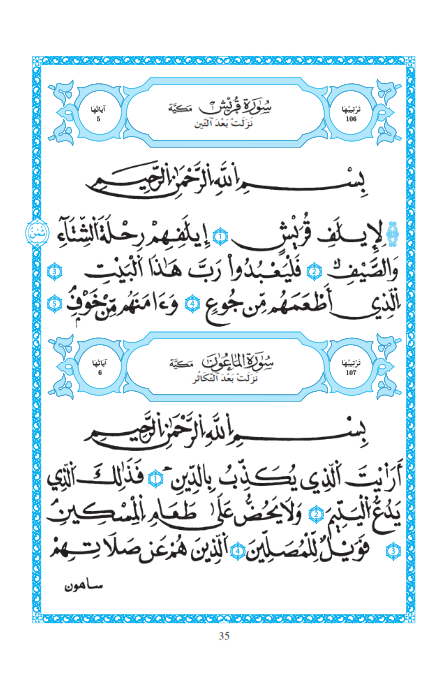 ترتيبها 106 سُورَةُ قُرَيْشٍ مَكِّيَّة آياتها 5
نَزَلَتْ بَعْدَ التِّين
بِسْمِ اِللَّهِ اِلرَّحْمَٰنِ اِلرَّحِيمِ
لِإِيلَٰفِ قُرَيْشٍ 1 إِۦلَٰفِهِمْ رِحْلَةَ اَلشِّتَآءِ ثمن
وَالصَّيْفِ 2 فَلْيَعْبُدُواْ رَبَّ هَٰذَا اَلْبَيْتِ 3
اِلَّذِي أَطْعَمَهُم مِّن جُوعٍ 4 وَءَامَنَهُم مِّنْ خَوْفٍ 5
ترتيبها 107 سُورَةُ الْمَاعُونِ مَكِّيَّة آياتها 6
نَزَلَتْ بَعْدَ التَّكَاثُر
بِسْمِ اِللَّهِ اِلرَّحْمَٰنِ اِلرَّحِيمِ
أَرَٰيْتَ اَلَّذِي يُكَذِّبُ بِالدِّينِ 1 فَذَٰلِكَ اَلَّذِي
يَدُعُّ اُلْيَتِيمَ 2 وَلَا يَحُضُّ عَلَىٰ طَعَامِ اِلْمِسْكِينِ
3 فَوَيْلٌ لِّلْمُصَلِّينَ 4 اَلَّذِينَ هُمْ عَن صَلَاتِهِمْ
ساهون
35